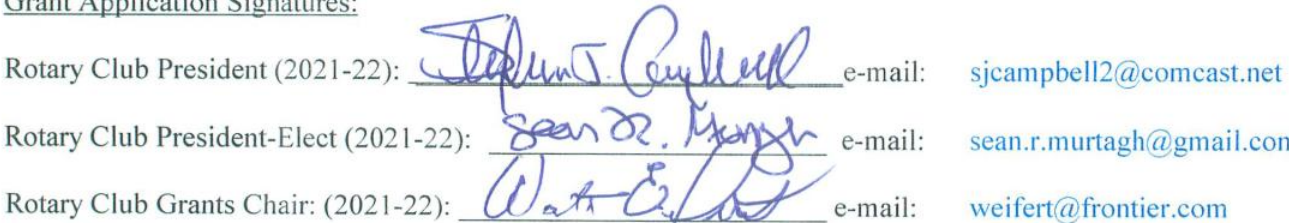 Grant Application Signatures:
Rotary Club President (2021-22): Stephen J. Campbell e-mail: sjcampbell2@comcast.net
Rotary Club President-Elect (2021-22): Sean R. Murtagh e-mail: sean.r.murtagh@gmail.com
Rotary Club Grants Chair: (2021-22): e-mail: weifert@frontier.com